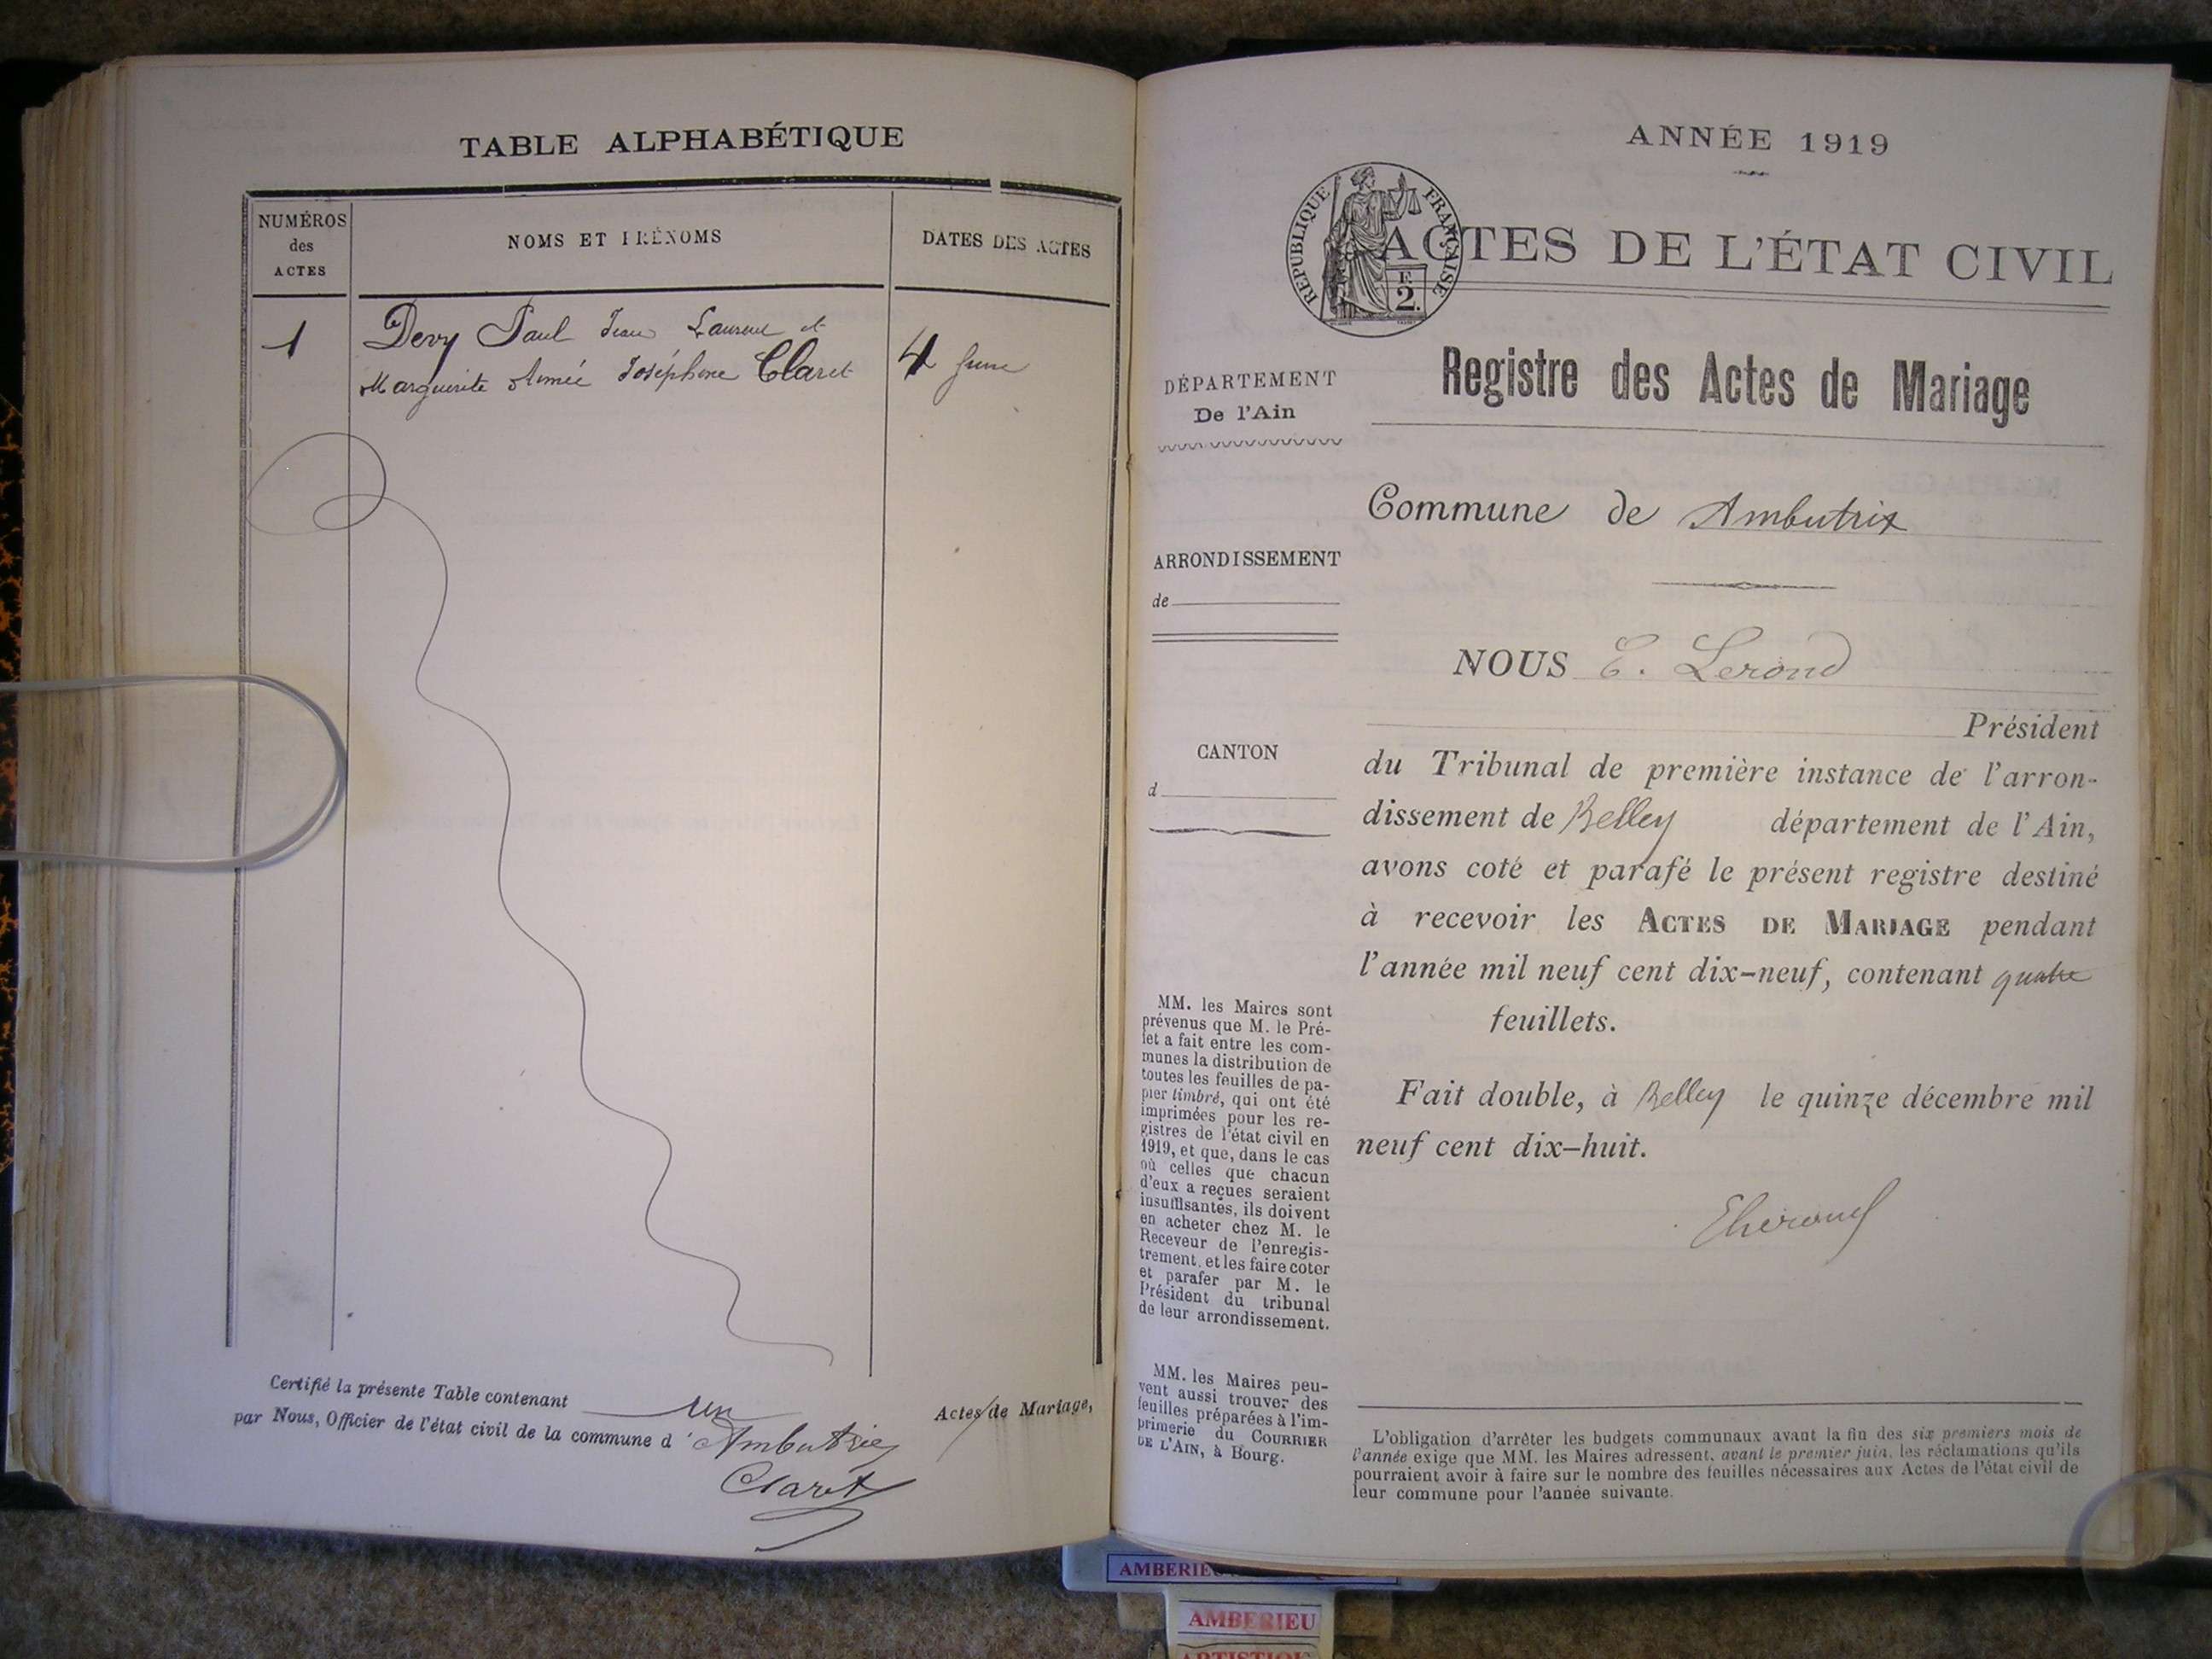 TABLE ALPHABÉTIQUE
NUMÉROS
des
ACTES
NOMS ET PRÉNOMS
DATES DES ACTES
1
Devy Paul Jean Laurent et
Marguerite Aimée Joséphine Claret
4 June
Certifié la présente Table contenant un Actes de Mariage,
par Nous, Officier de l'état civil de la commune d'Ambutrix
Claret
ANNÉE 1919
RÉPUBLIQUE FRANÇAISE
2.
ACTES DE L'ÉTAT CIVIL
DÉPARTEMENT
De l'Ain
Registre des Actes de Mariage
Commune de Ambutrix
ARRONDISSEMENT
de
NOUS E. Lerond
Président
CANTON
d
du Tribunal de première instance de l'arron-
dissement de Belley département de l'Ain,
avons coté et parafé le présent registre destiné
à recevoir les ACTES DE MARIAGE pendant
l'année mil neuf cent dix-neuf, contenant quatre
feuillets.
Fait double, à Belley le quinze décembre mil
neuf cent dix-huit.
MM. les Maires sont
prévenus que M. le Pré-
fet a fait entre les com-
munes la distribution de
toutes les feuilles de pa-
pier timbré, qui ont été
imprimées pour les re-
gistres de l'état civil en
1919, et que, dans le cas
où celles que chacun
d'eux a reçues seraient
insuffisantes, ils doivent
en acheter chez M. le
Receveur de l'enregis-
trement, et les faire coter
et parafer par M. le
Président du tribunal
de leur arrondissement.
MM. les Maires peu-
vent aussi trouver des
feuilles préparées à l'im-
primerie du COURRIER
DE L'AIN, à Bourg.
L'obligation d'arrêter les budgets communaux avant la fin des six premiers mois de
l'année exige que MM. les Maires adressent, avant le premier juin, les réclamations qu'ils
pourraient avoir à faire sur le nombre des feuilles nécessaires aux Actes de l'état civil de
leur commune pour l'année suivante.
AMBERIEU